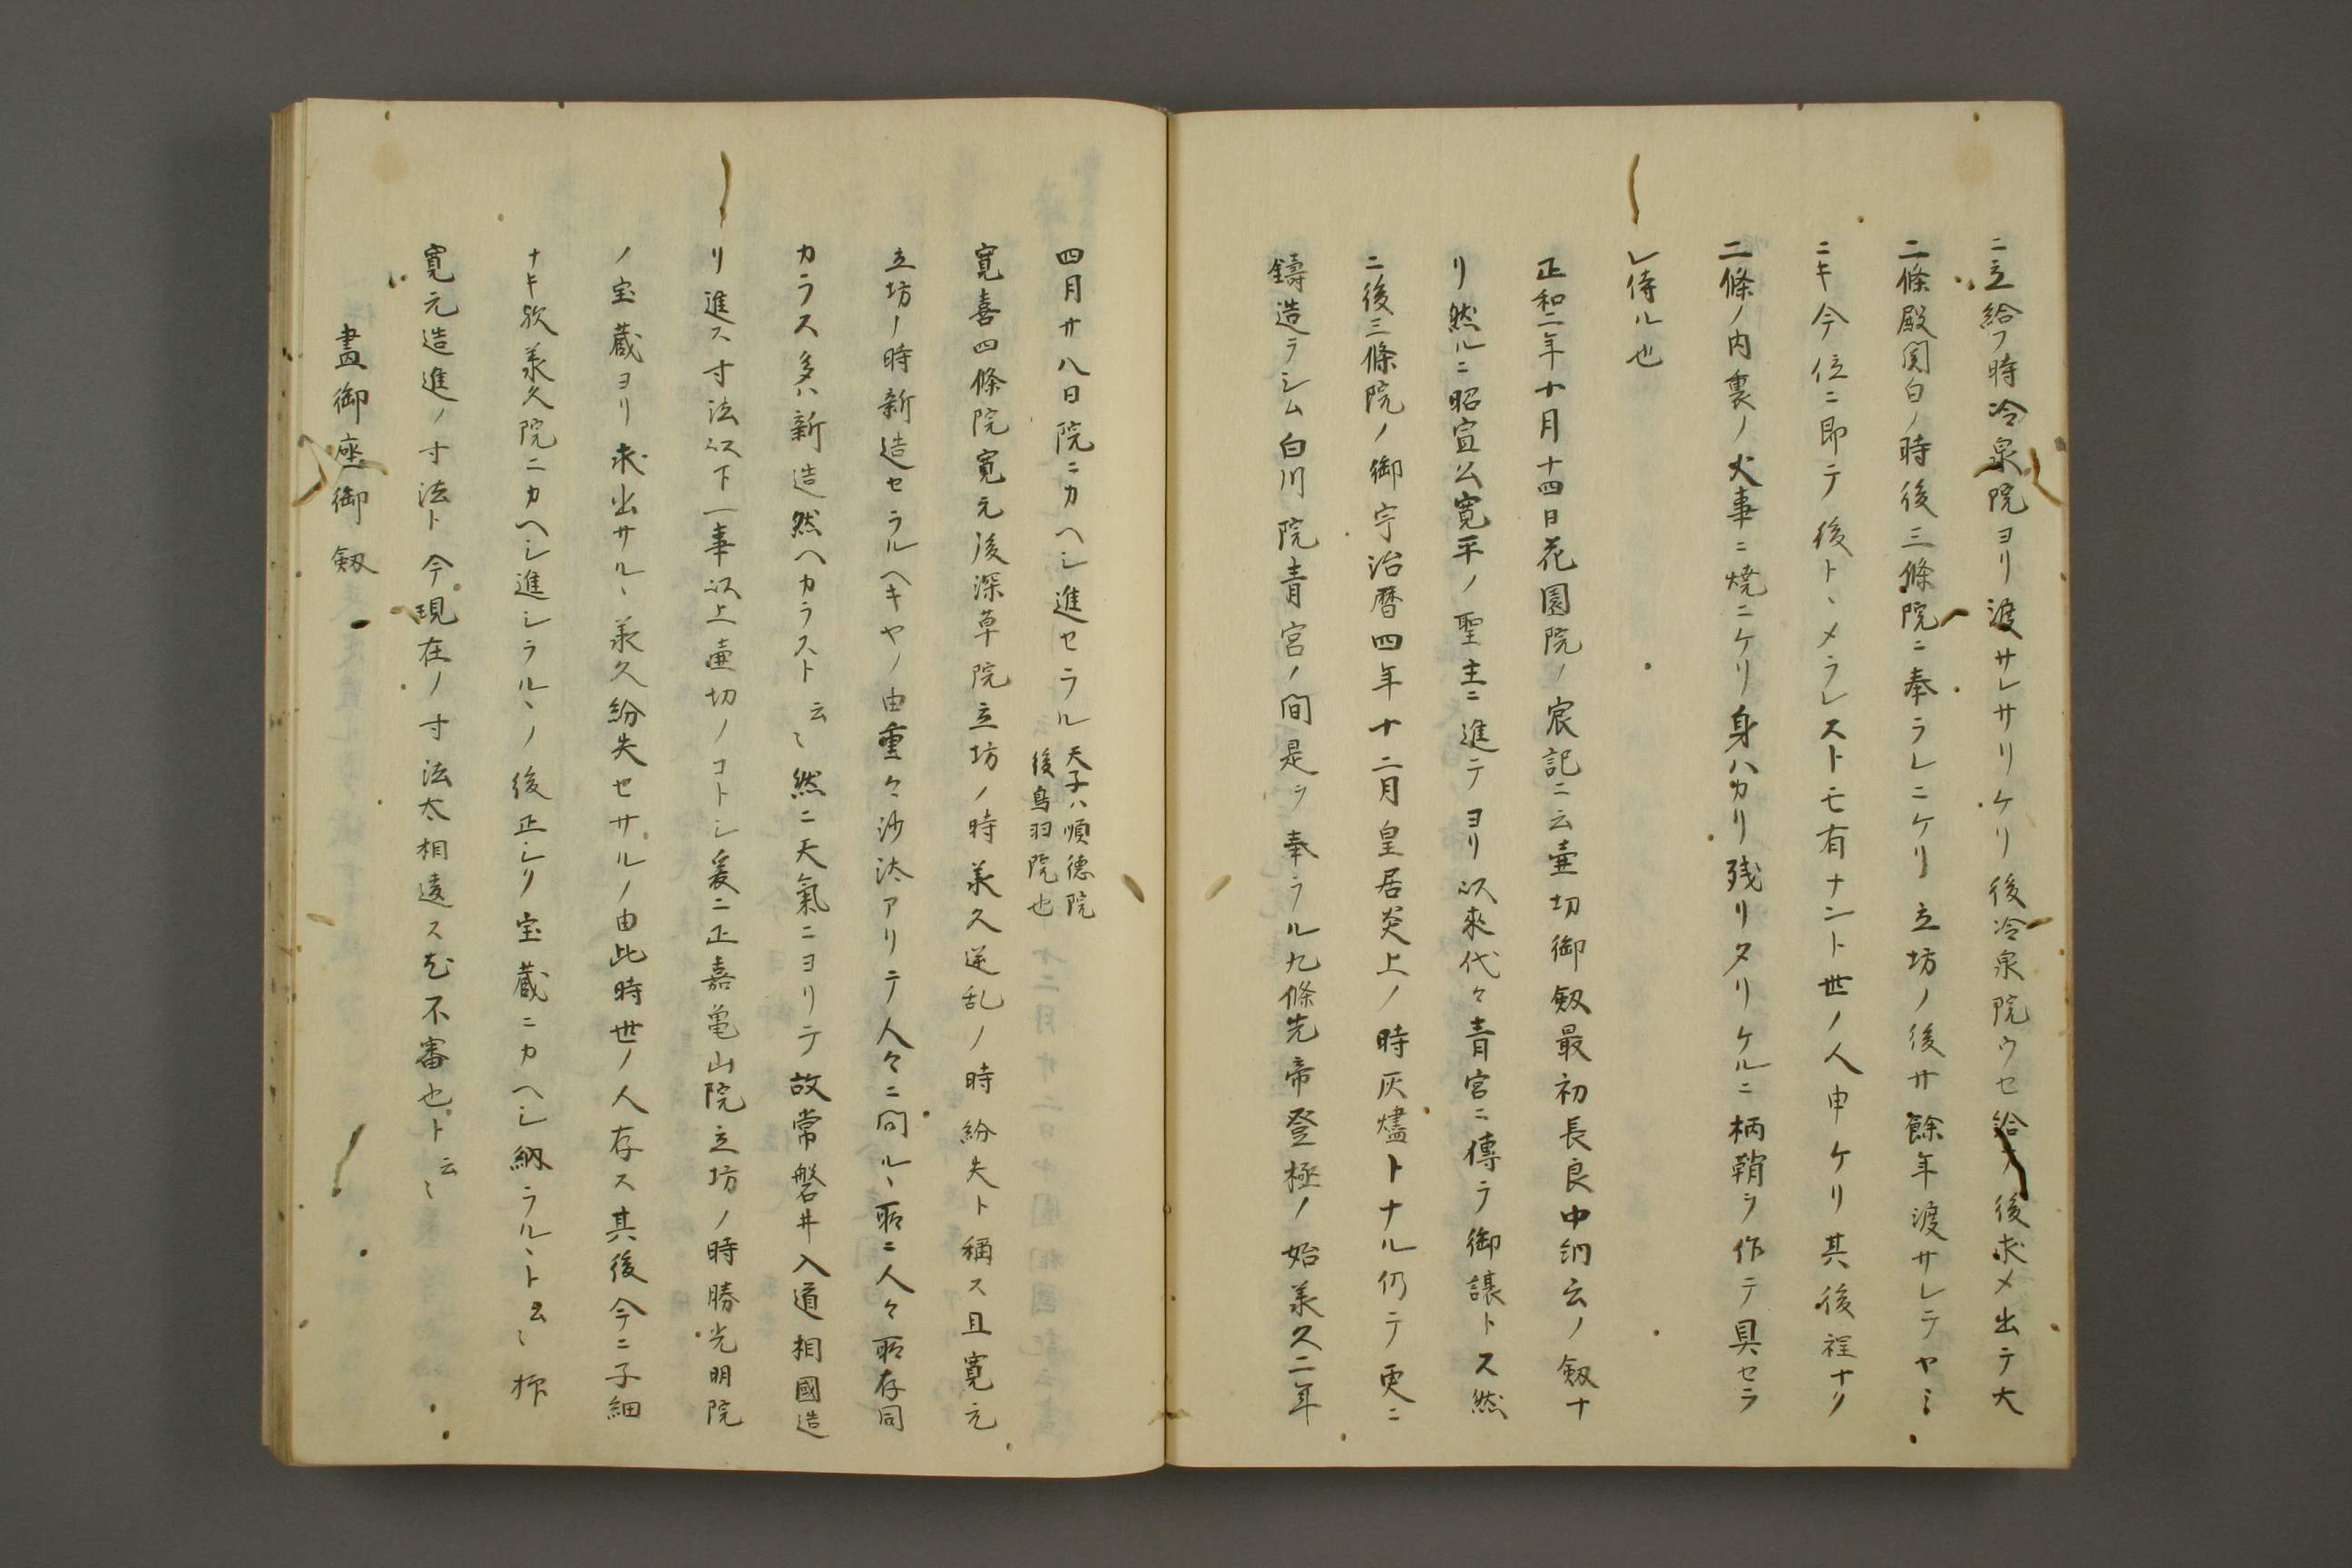 ニ立給フ時冷泉院ヨリ渡サレサリケリ後冷泉院ウセ給テ後求メ出テ大
二條殿関白ノ時後三條院ニ奉ラレニケリ立坊ノ後廿餘年渡サレテヤミ
ニキ今位ニ即テ後トヽメラレストモ有ナント世ノ人申ケリ其後程ナク
二條ノ内裏ノ火事ニ焼ニケリ身ハカリ残リタリケルニ柄鞘ヲ作テ具セラ
レ侍ル也
正和二年十月十四日花園院ノ宸記ニ云壷切御釼最初長良中納言ノ釼ナ
リ然ルニ昭宣公寛平ノ聖主ニ進テヨリ以來代々青宮ニ傳ヲ御譲トス然
ニ後三條院ノ御宇治暦四年十二月皇居炎上ノ時灰燼トナル仍テ更ニ
鑄造ラシム白川院青宮ノ間是ヲ奉ラル九條先帝登極ノ始承久二年
四月廿八日院ニカヘシ進セラル天子ハ順德院
後鳥羽院也
寛喜四條院寛元後深草院立坊ノ時承久逆乱ノ時紛失ト稱ス且寛元
立坊ノ時新造セラルヘキヤノ由重々沙汰アリテ人々ニ問ルヽ所ニ人々所存同
カラス多ハ新造然ヘカラスト云〻然ニ天氣ニヨリテ故常磐井入道相國造
リ進ス寸法以下一事以上壷切ノコトシ爰ニ正嘉亀山院立坊ノ時勝光明院
ノ宝蔵ヨリ求出サルヽ承久紛失セサルノ由此時世ノ人存ス其後今ニ子細
ナキ歟承久院ニカヘシ進シラルヽノ後正シク宝蔵ニカヘシ納ラルヽト云〻抑
寛元造進ノ寸法ト今現在ノ寸法太相違ス尤不審也ト云〻
晝御座御釼